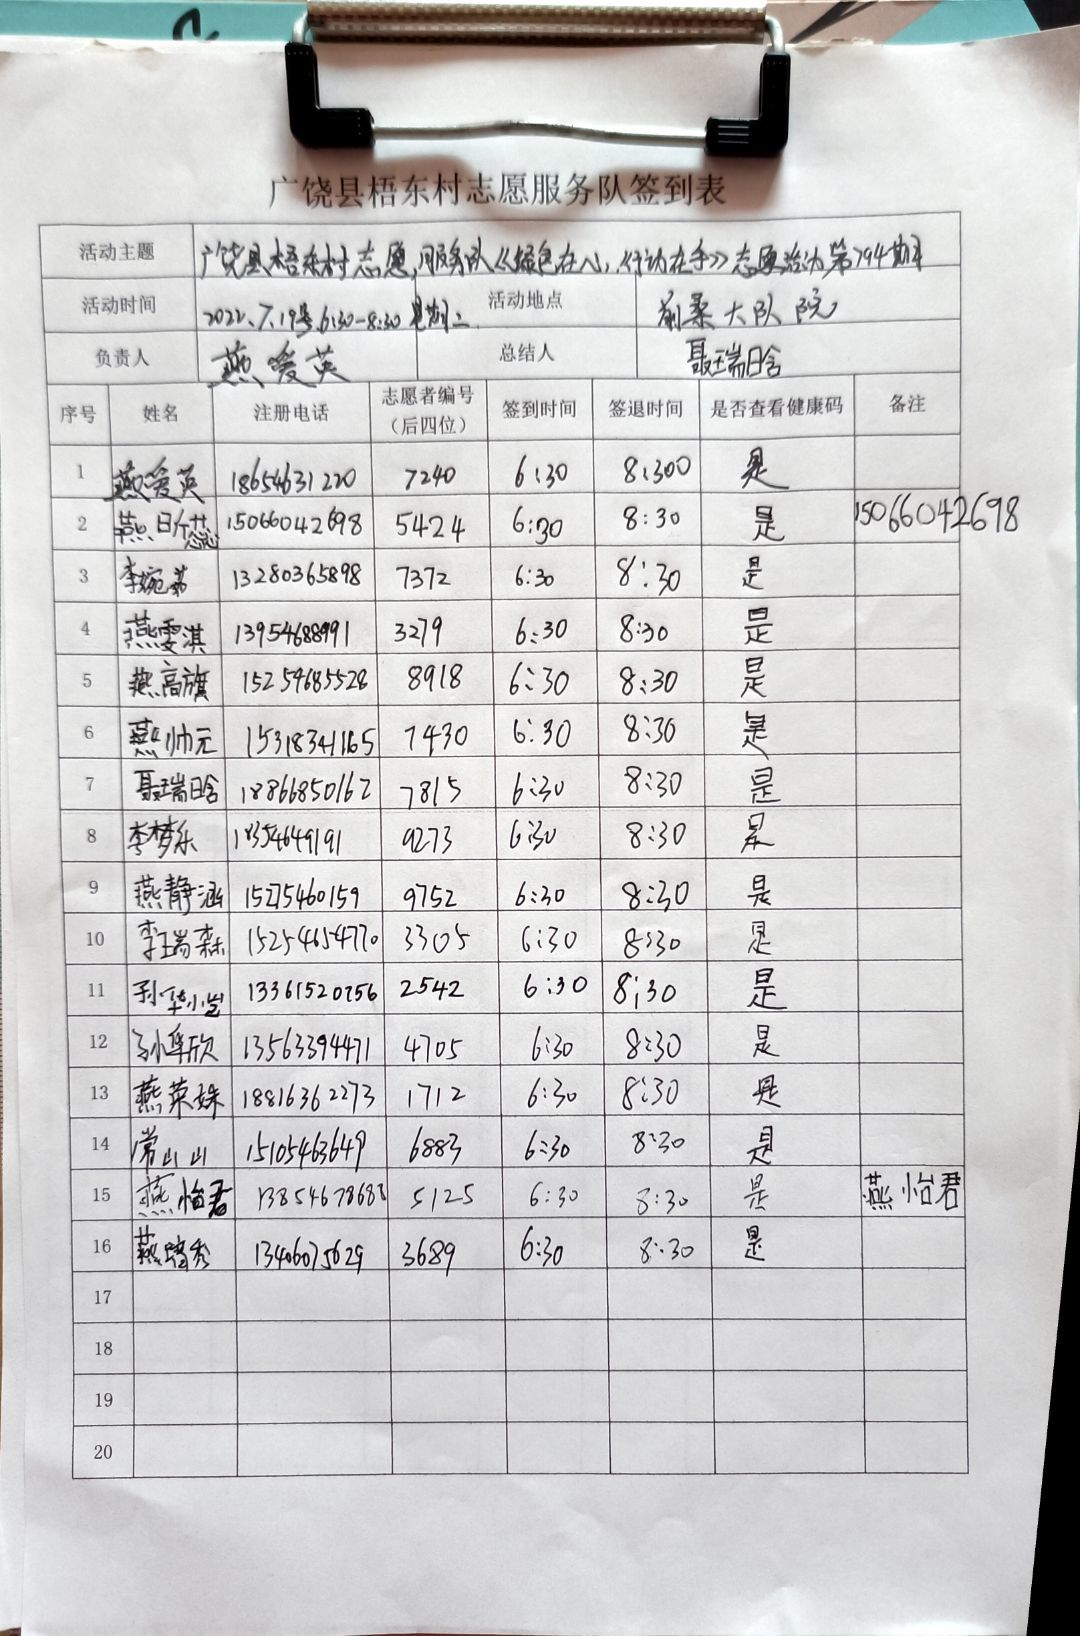 广饶县梧东村志愿服务队签到表
活动主题 广饶县梧东村志愿服务队《绿色在心,行动在手》志愿活动第794期
活动时间 2022、7.19号 6:30-8:30 星期二 活动地点 前桑大队院
负责人 燕爱英 总结人 聂瑞晗
序号 姓名 注册电话 志愿者编号（后四位） 签到时间 签退时间 是否查看健康码 备注
1 燕爱英 18654631220 7240 6:30 8:300 是
2 燕 蕊 15066042698 5424 6:30 8:30 是 15066042698
3 李婉 13280365898 7372 6:30 8:30 是
4 燕雯淇 13954688991 3279 6:30 8:30 是
5 燕高旗 15254685528 8918 6:30 8:30 是
6 燕帅元 15318341165 7430 6:30 8:30 是
7 聂瑞晗 18866850162 7815 6:30 8:30 是
8 李梦乐 18354649191 9273 6:30 8:30 是
9 燕静涵 15275460159 9752 6:30 8:30 是
10 李瑞森 15254654770 3305 6:30 8:30 是
11 孙 13361520256 2542 6:30 8:30 是
12 孙 欣 13563394471 4705 6:30 8:30 是
13 燕荣姝 18816362273 1712 6:30 8:30 是
14 常山山 15105463649 6883 6:30 8:30 是
15 燕怡君 13854678683 5125 6:30 8:30 是 燕怡君
16 燕 秀 13406075629 3689 6:30 8:30 是
17
18
19
20